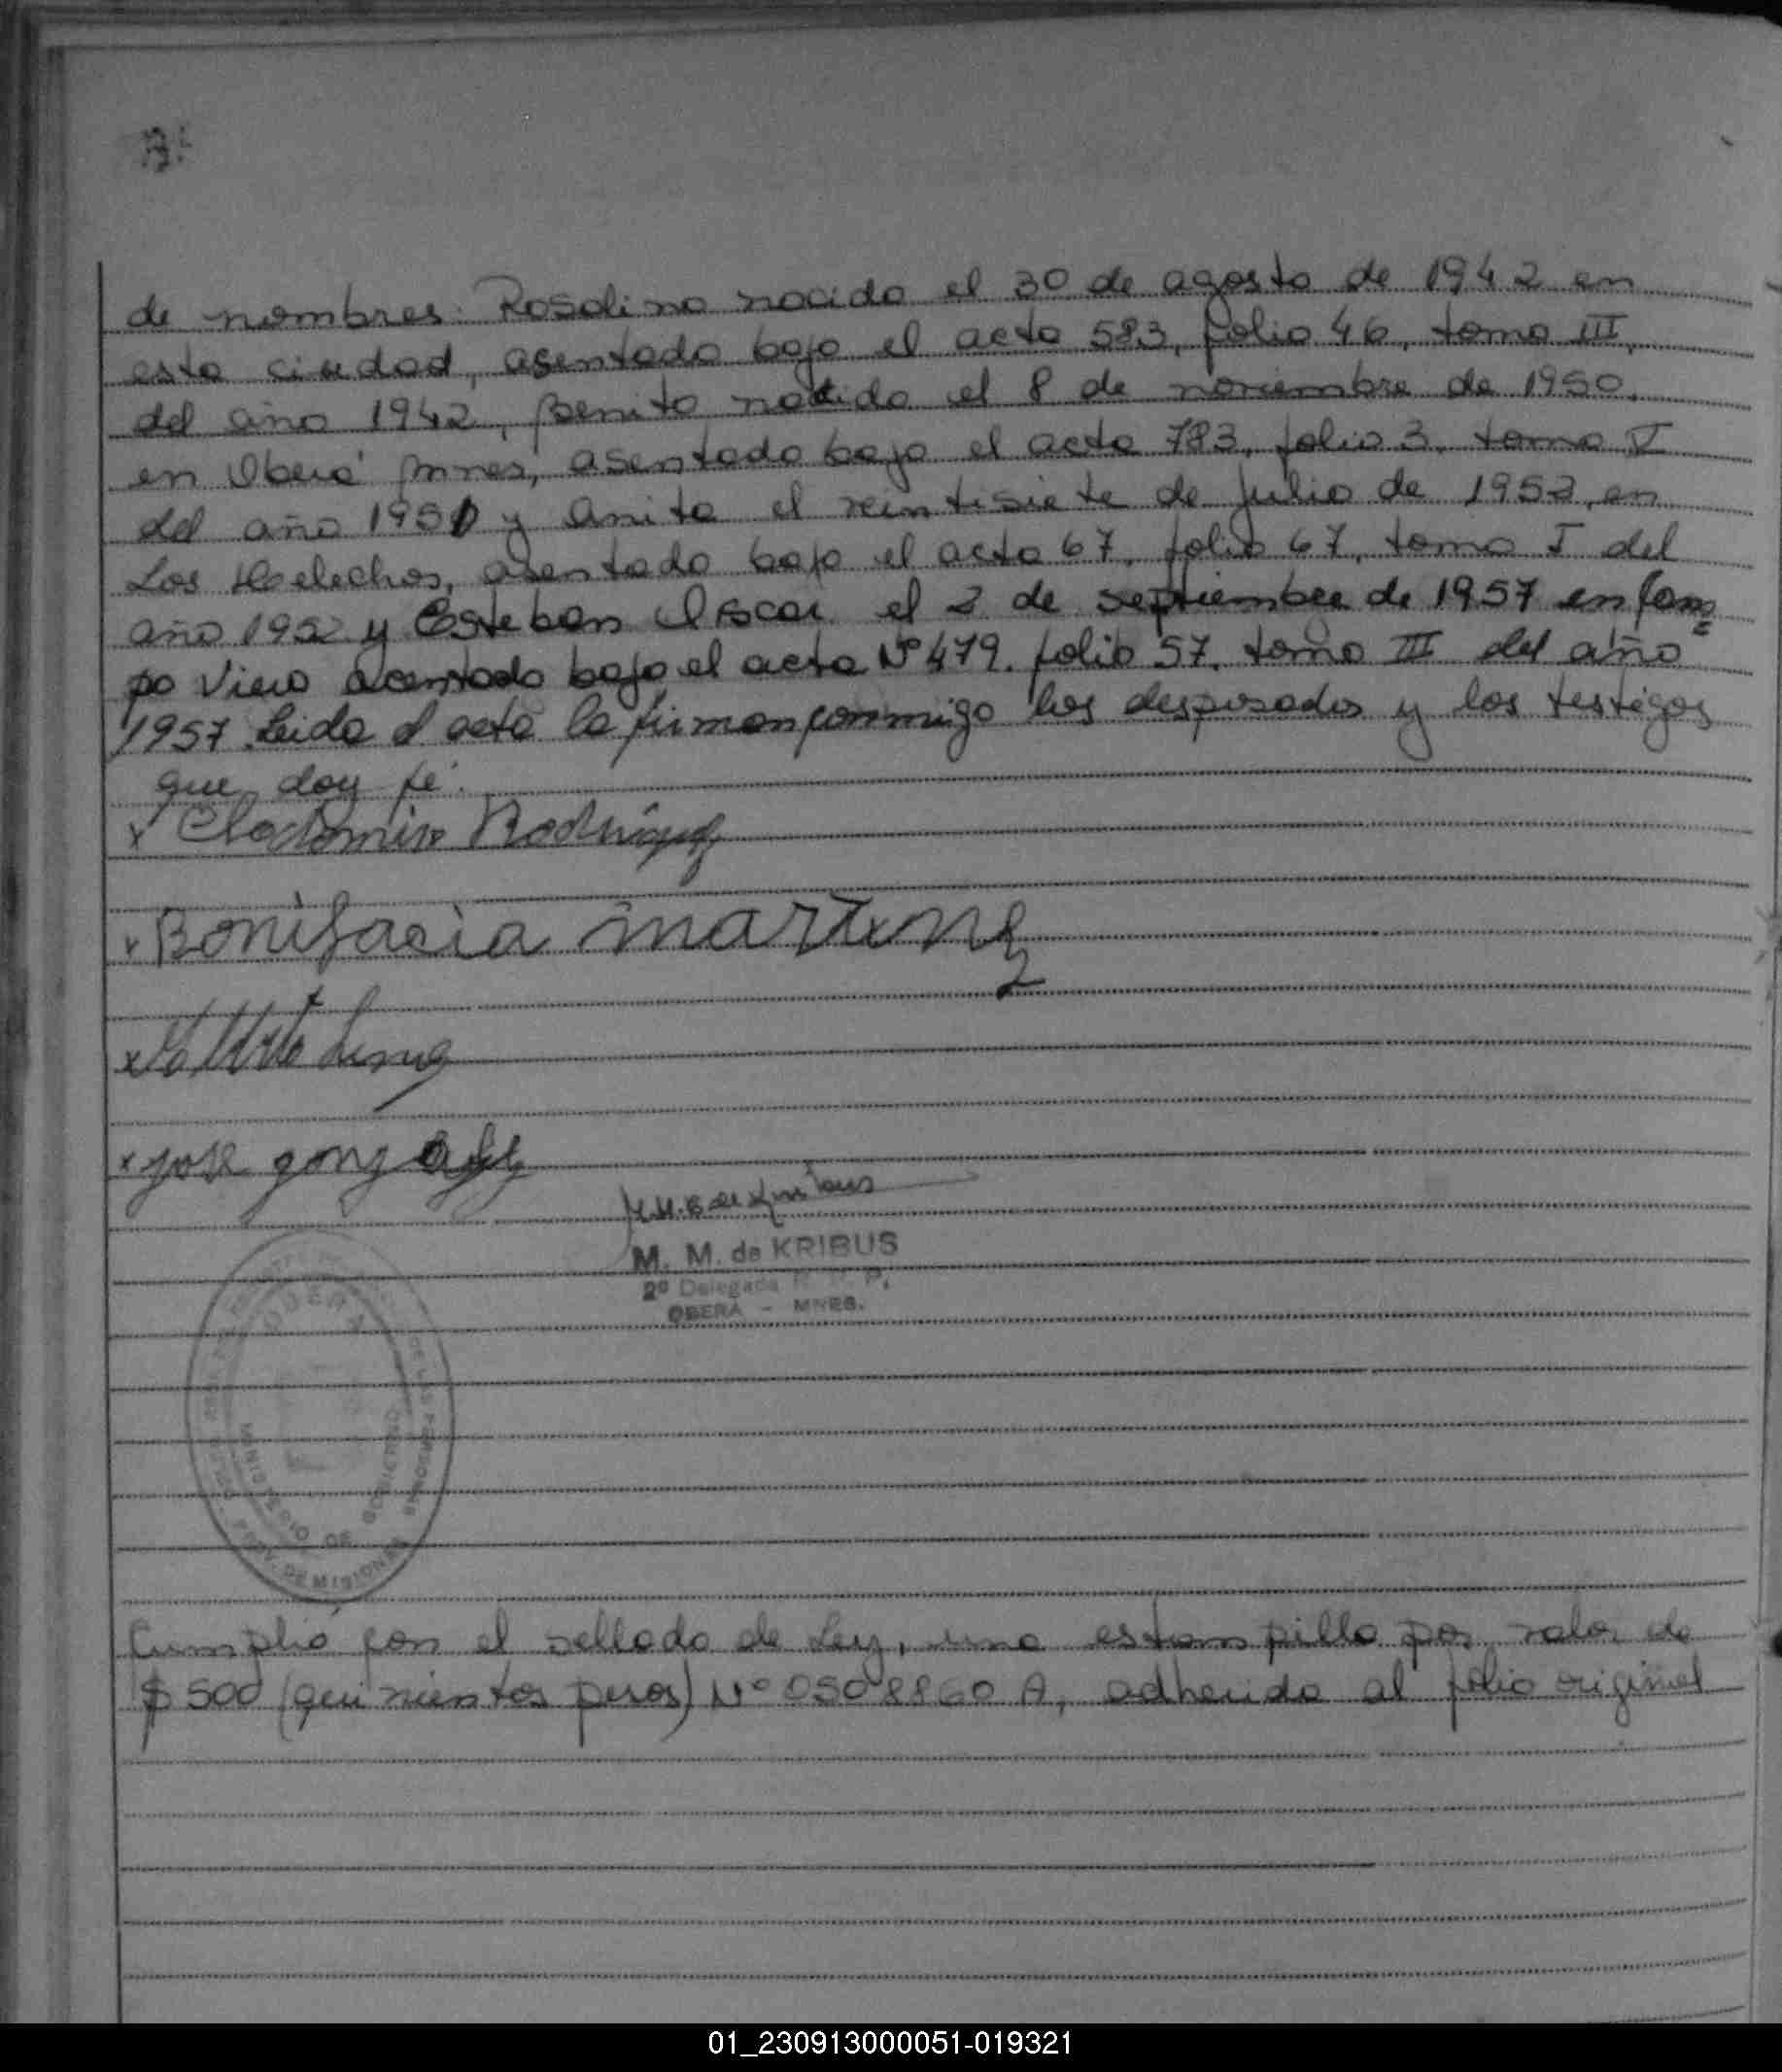 de nombres: Rosolino nacido el 30 de agosto de 1942 en
esta ciudad, asentado bajo el acta 583, folio 46, tomo III,
del año 1942, Benito nacido el 8 de noviembre de 1950,
en Oberá Mnes, asentado bajo el acta 783, folio 3, tomo V
del año 1950 y Anita el veintisiete de Julio de 1952, en
Los Helechos, asentada bajo el acta 67, folio 67, tomo I del
año 1952 y Esteban Oscar el 2 de septiembre de 1957 en Cam=
po Viera acentado bajo el acta Nº 479. folio 57. tomo III del año
1957. Leida el acta la firman conmigo los desposados y los testigos
que doy fé.
x Clodomiro Rodriguez
x Bonifacia martinez
x
x jose gonzalez
M. M. de KRIBUS
2º Delegada R. P.
OBERA - MNES.
OBERA
DE LAS PERSONAS
MINISTERIO DE GOBIERNO
PROV. DE MISIONES
Cumplió con el sellado de Ley, una estampilla por valor de
$ 500 (quinientos pesos) Nº 0508860 A, adherida al folio original
01_230913000051-019321